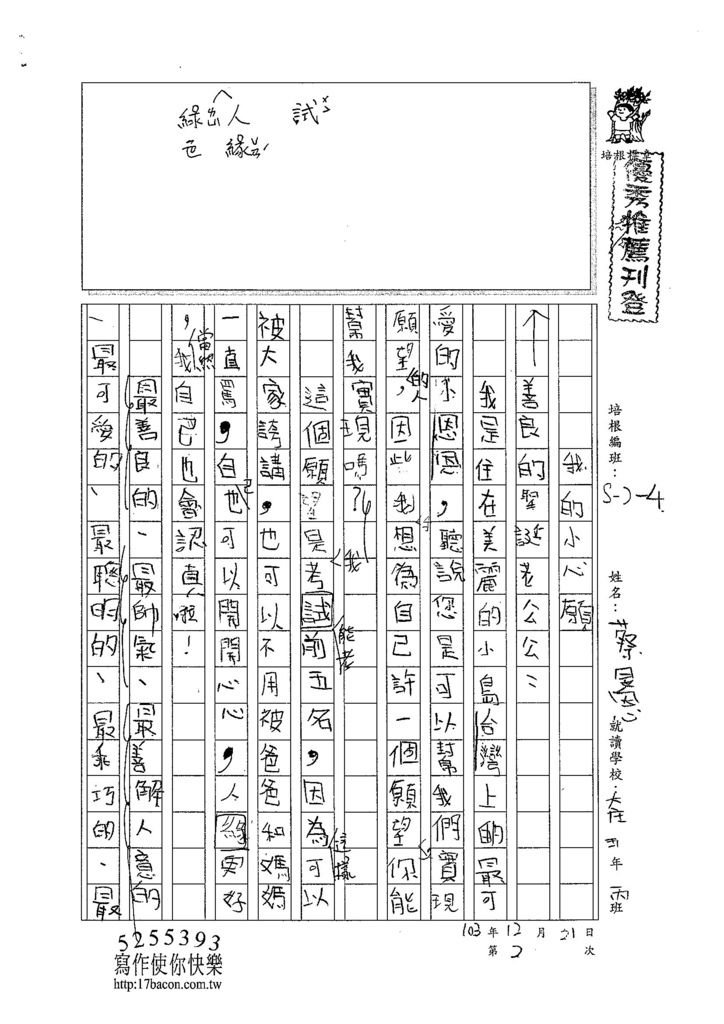 綠ㄌㄩˋ人 試ㄕˋ
色 緣
培根推薦
優秀推薦刊登
培根編班：S-J-4
姓名：蔡旻恩
就讀學校：大庄 四年 丙班
103年12月21日
第2次
我的小心願
善良的聖誕老公公：
我是住在美麗的小島台灣上的最可
愛的小恩恩，聽說您是可以幫我們實現
願望的人，因此我想為自己許一個願望，你能
幫我實現嗎？
這個願望是我能考試前五名，因為這樣可以
被大家誇講，也可以不用被爸爸和媽媽
一直罵，自己也可以開開心心，人緣更好
，當然我自已也會認真啦！
最善良的、最帥氣、最善解人意的
、最可愛的、最聰明的、最乖巧的、最
5255393
寫作使你快樂
http:17bacon.com.tw